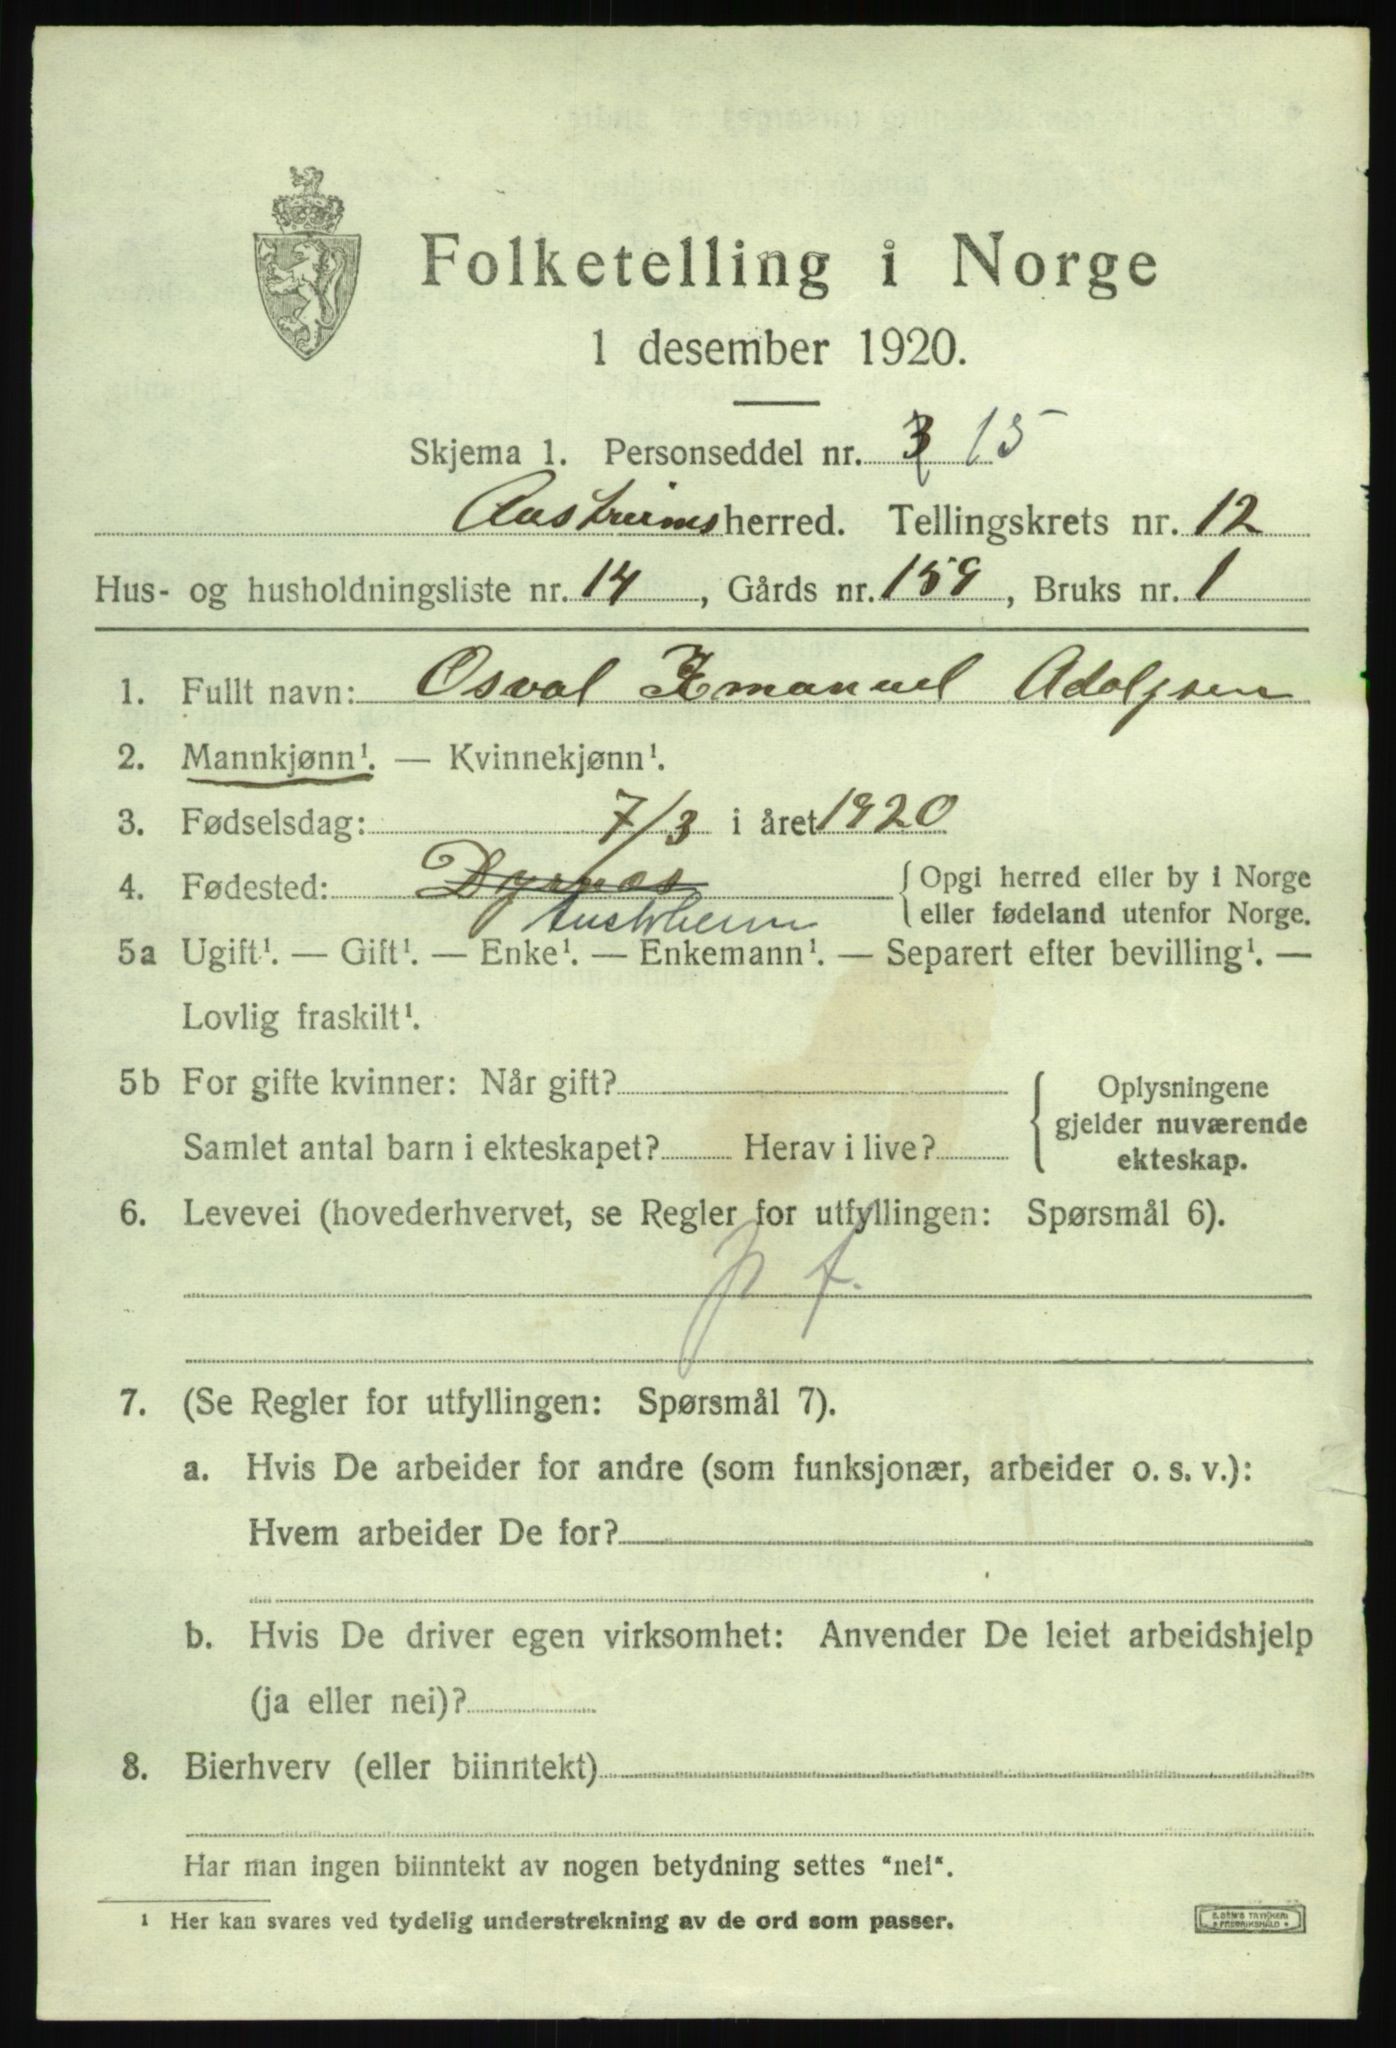 Folketelling i Norge
1 desember 1920.
Skjema 1. Personseddel nr. 3 15
Austreims herred. Tellingskrets nr. 12
Hus- og husholdningsliste nr. 14, Gårds nr. 159, Bruks nr. 1
1. Fullt navn: Osval Emanuel Adolfsen
2. Mannkjønn¹. — Kvinnekjønn¹.
3. Fødselsdag: 7/3 i året 1920
4. Fødested: Dyrnæs { Opgi herred eller by i Norge
Austrheim eller fødeland utenfor Norge.
5a Ugift¹. — Gift¹. — Enke¹. — Enkemann¹. — Separert efter bevilling¹. —
Lovlig fraskilt¹.
5b For gifte kvinner: Når gift? { Oplysningene
gjelder nuværende
Samlet antal barn i ekteskapet? Herav i live? ekteskap.
6. Levevei (hovederhvervet, se Regler for utfyllingen: Spørsmål 6).
7. (Se Regler for utfyllingen: Spørsmål 7).
a. Hvis De arbeider for andre (som funksjonær, arbeider o. s. v.):
Hvem arbeider De for?
b. Hvis De driver egen virksomhet: Anvender De leiet arbeidshjelp
(ja eller nei)?
8. Bierhverv (eller biinntekt)
Har man ingen biinntekt av nogen betydning settes "nei".
¹ Her kan svares ved tydelig understrekning av de ord som passer.